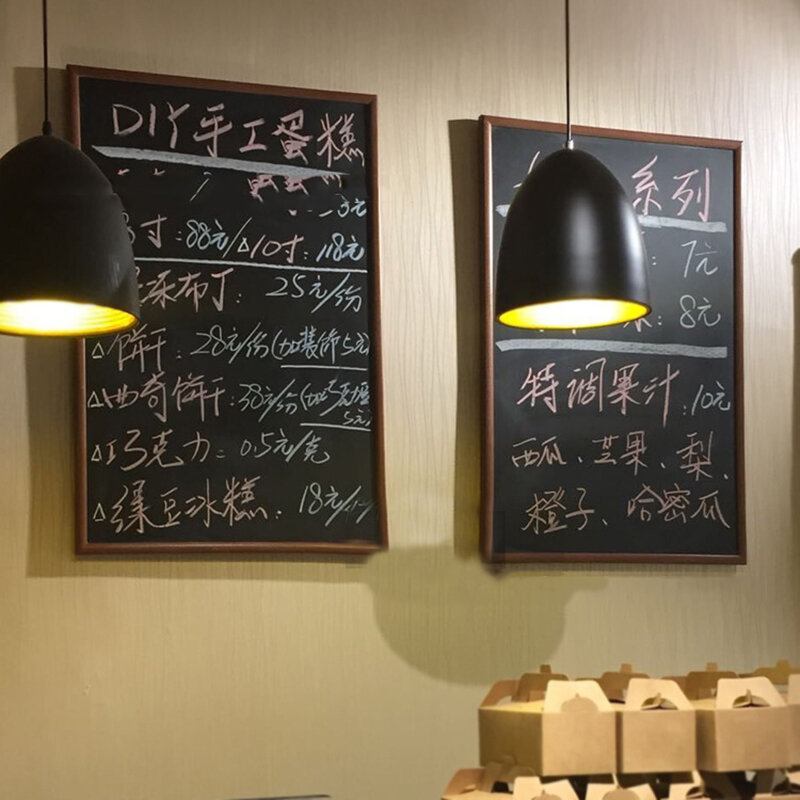 DIY手工蛋糕
3元
寸:88元/△10寸:118元
布丁: 25元/份
△饼干:28元/份(加装饰5元)
△曲奇饼干:38元/份(
5元)
△巧克力:0.5元/克
△绿豆冰糕: 18元/
系列
: 7元
: 8元
特调果汁:10元
西瓜、芒果、梨、
橙子、哈密瓜